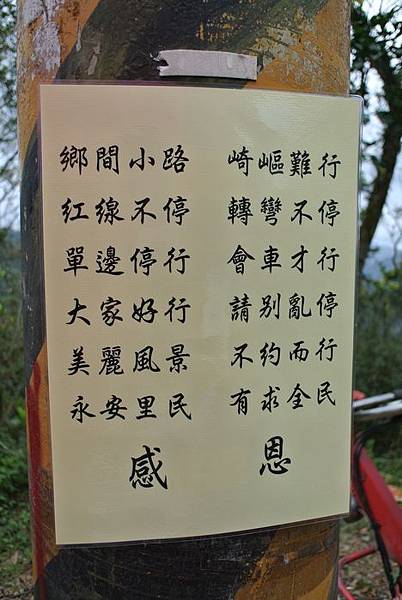 鄉間小路 崎嶇難行
紅線不停 轉彎不停
單邊停行 會車才行
大家好行 請別亂停
美麗風景 不約而行
永安里民 有求全民
感恩